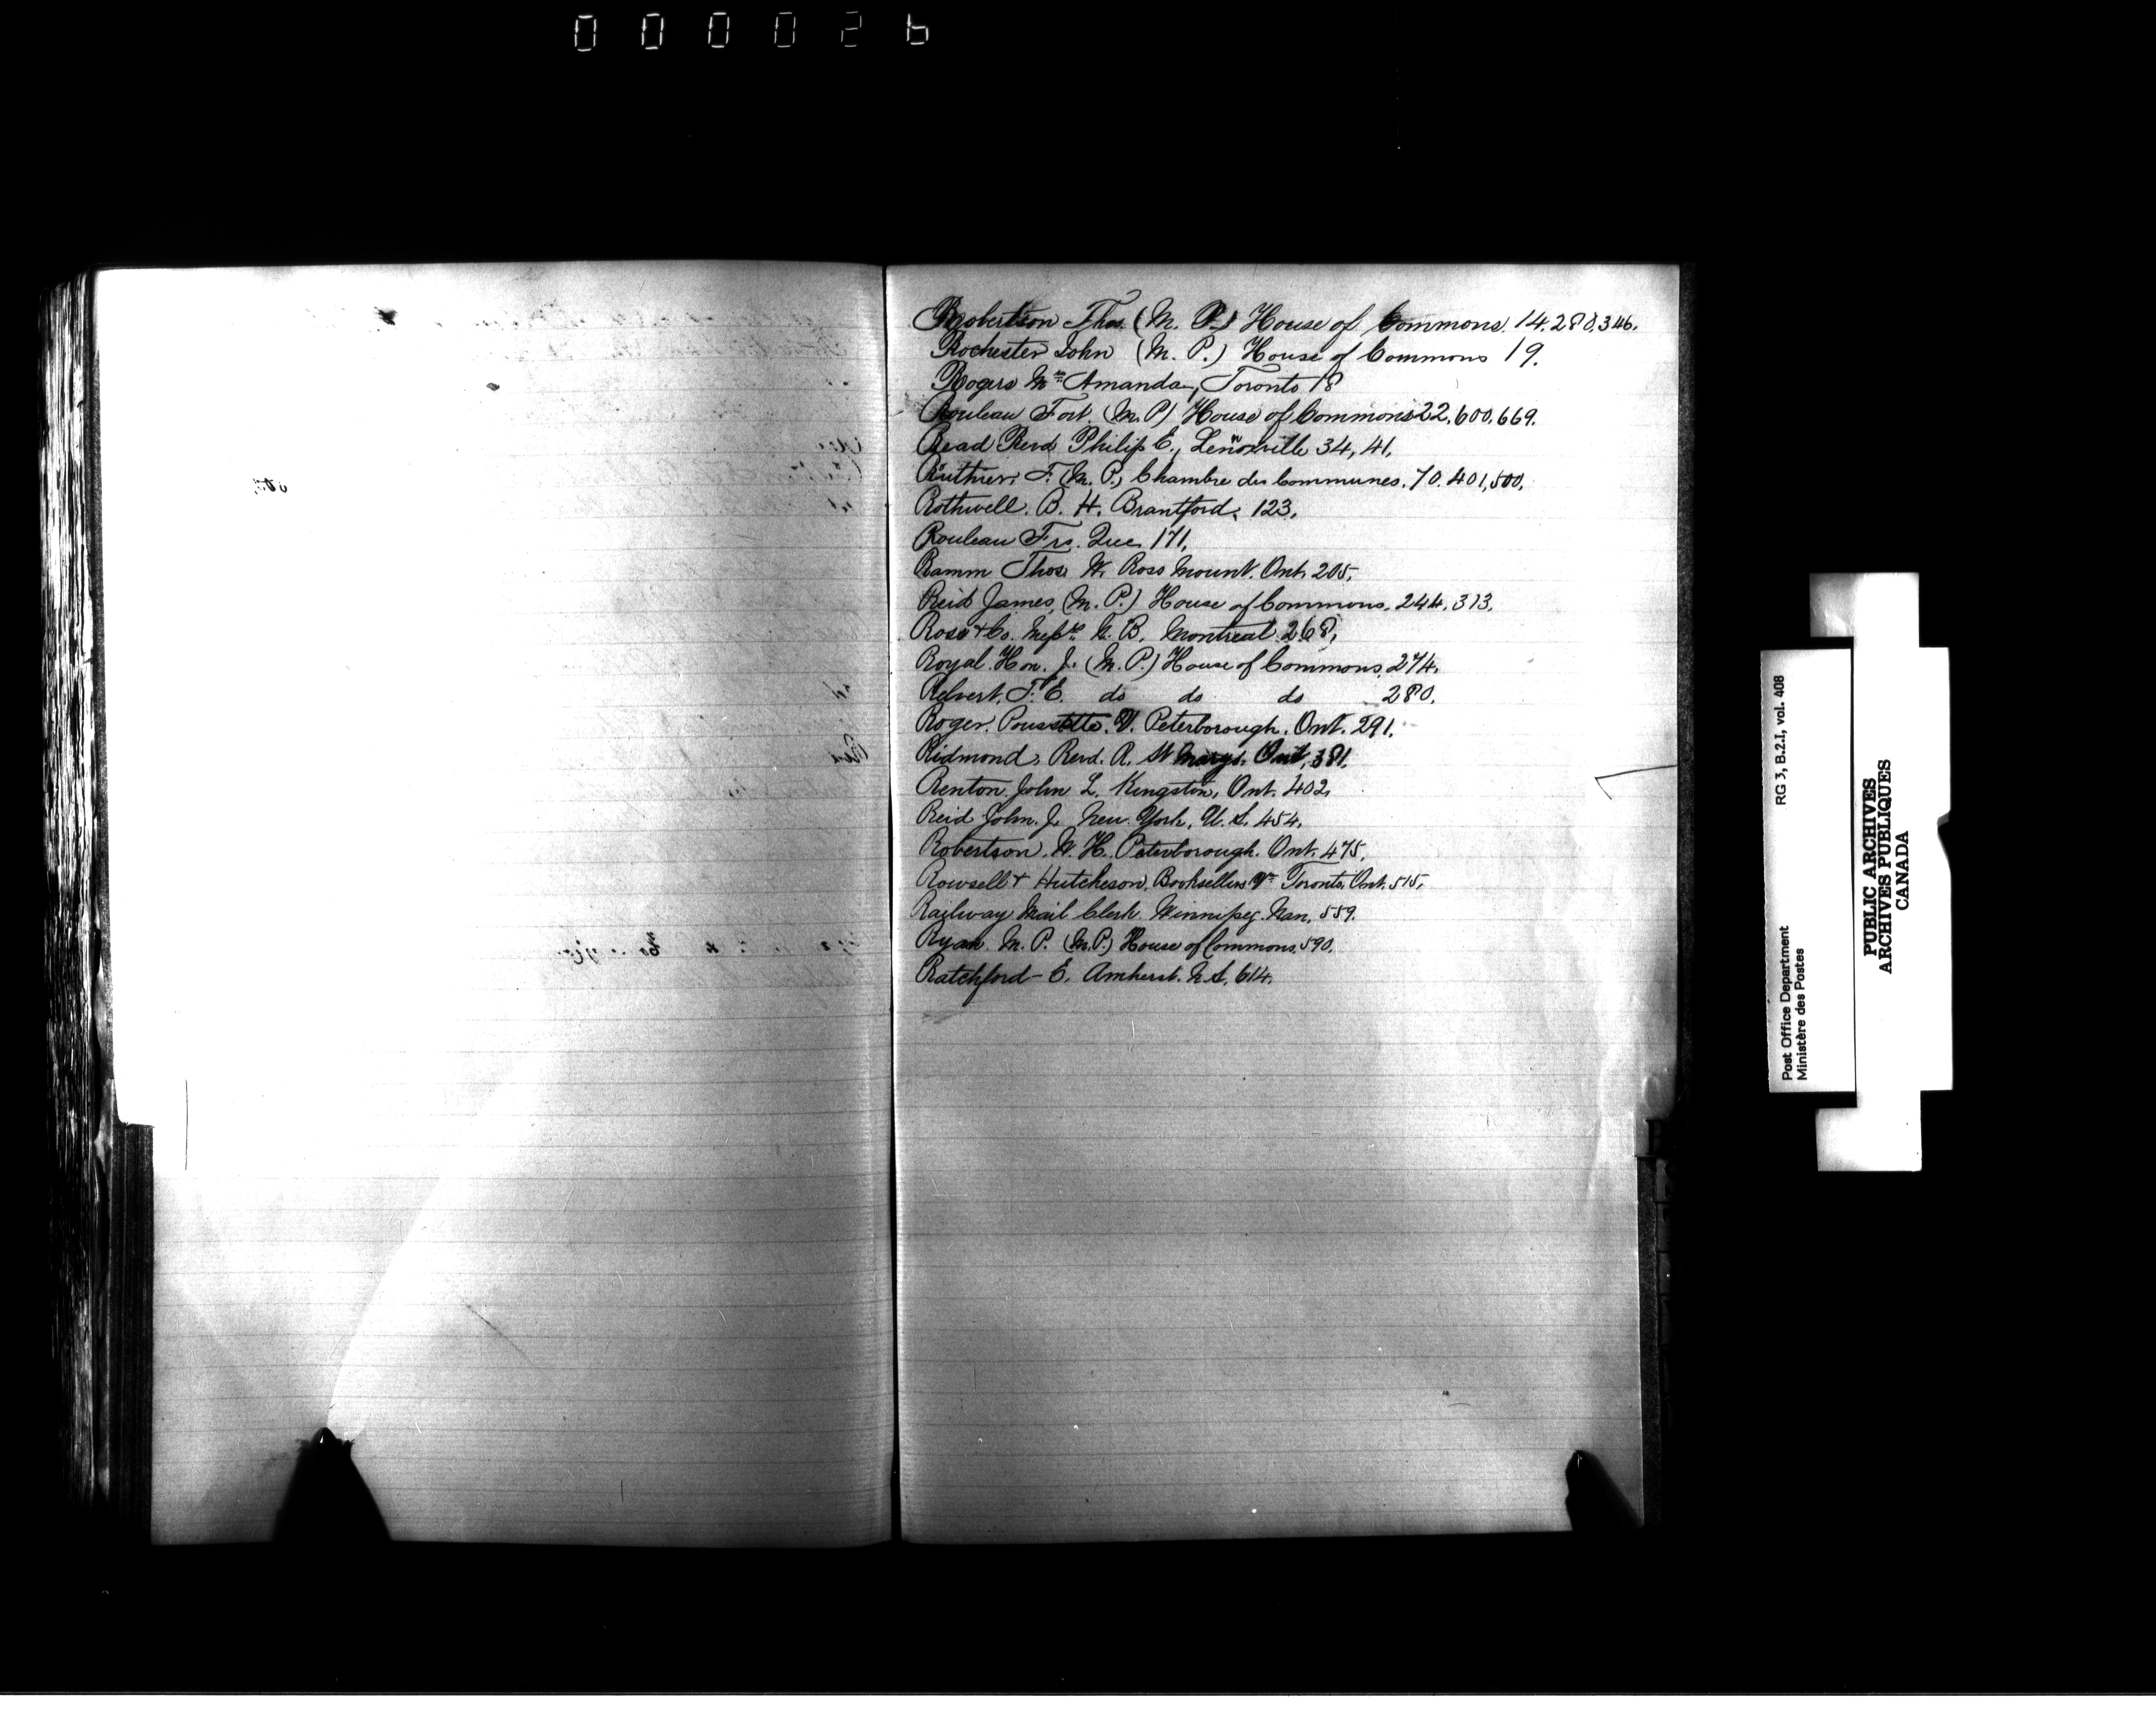 000026
Robertson Thos. (M. P.) House of Commons. 14. 280, 346.
Rochester John (M. P.) House of Commons 19.
Rogers Mrs Amanda, Toronto 18
Rouleau Fort. (M. P) House of Commons 22, 600, 669.
Read Revd Philip E., Lenoxville 34, 41,
Routhier, F. (M. P.) Chambre des Communes. 70. 401, 500,
Rothwell. B. H. Brantford. 123,
Rouleau Frs. Que. 171,
Ramm Thos. W. Ross Mount. Ont. 205,
Reid James, (M. P.) House of Commons. 244. 313,
Rose & Co. Messrs N. B. Montreal. 268,
Royal. Hon. J. (M. P.) House of Commons, 274.
F. E. do do do 280,
Roger. V. Peterborough. Ont. 291.
Ridmond, Revd. R. St Marys. Ont, 381,
Renton. John L. Kingston, Ont. 402,
Reid John. J. New. York, U. S. 454,
Robertson. W. H. Peterborough. Ont. 475,
Rowsell & Hutcheson, Booksellers Toronto, Ont. 515,
Railway Mail Clerk. Winnipeg. Man, 559.
Ryan. M. P. (M.P.) House of Commons. 590,
Ratchford - E. Amherst. N.S, 614,
Post Office Department RG 3, B.2.I, vol. 408
Ministère des Postes
PUBLIC ARCHIVES
ARCHIVES PUBLIQUES
CANADA